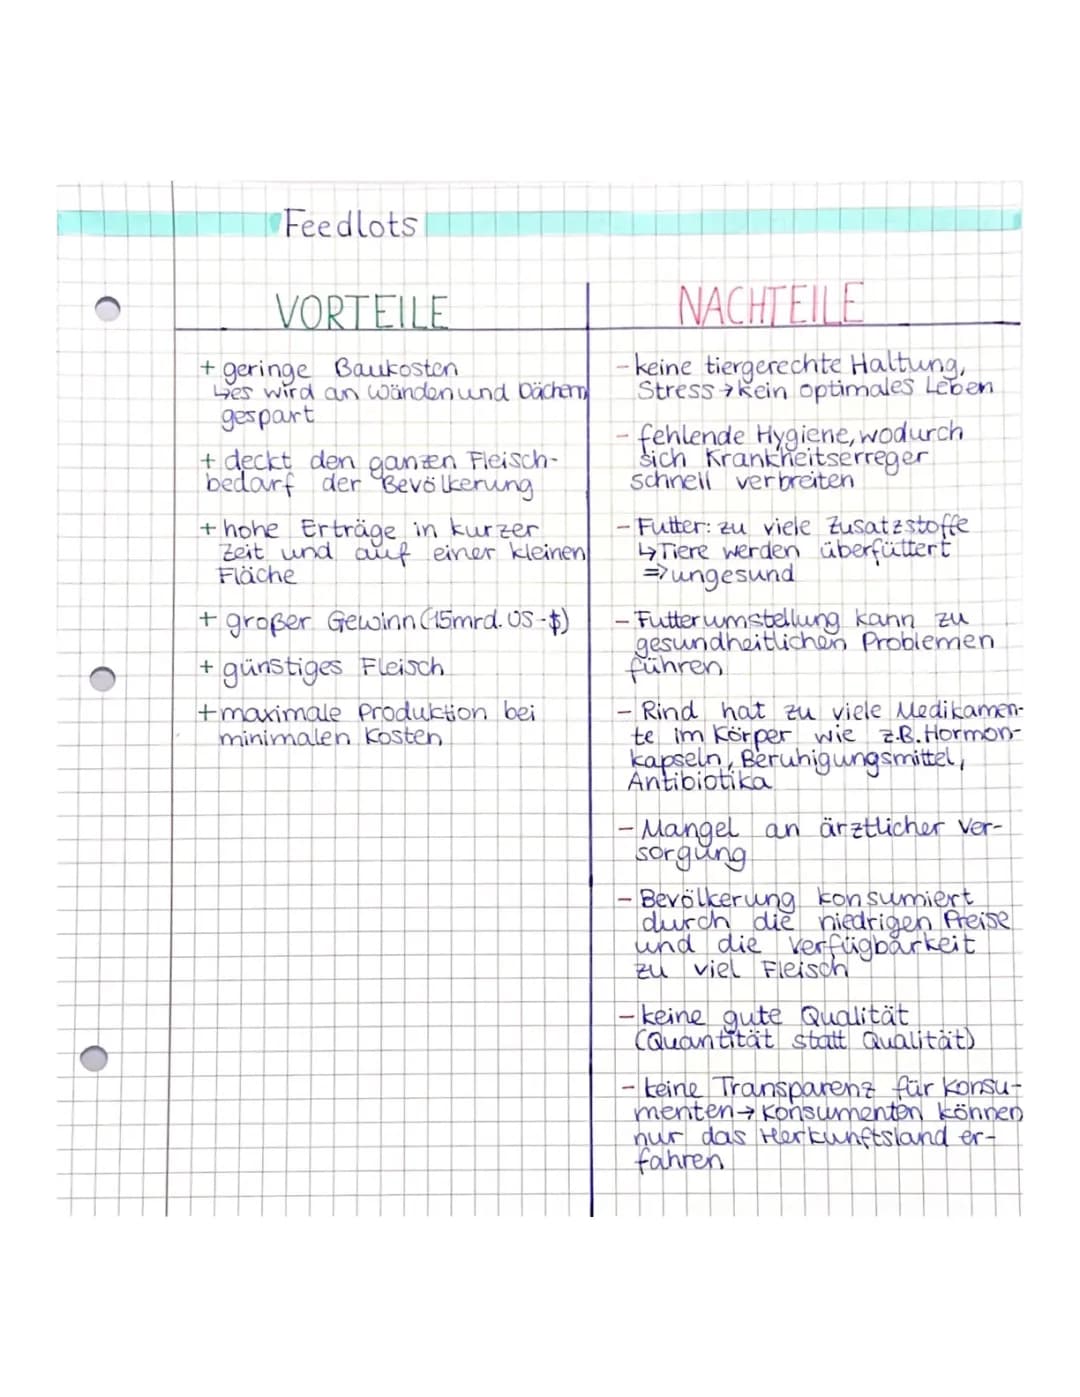 Feedlots
VORTEILE
+ geringe Baukosten
↳es wird an Wänden und Dächern
gespart
+ deckt den ganzen Fleisch-
bedarf der Bevölkerung
+ hohe Erträge in kurzer
Zeit und auf einer kleinen
Fläche
+ großer Gewinn (15mrd. US-$)
+ günstiges Fleisch
+ maximale Produktion bei
minimalen Kosten
NACHTEILE
- keine tiergerechte Haltung,
Stress → kein optimales Leben
- fehlende Hygiene, wodurch
sich Krankheitserreger
schnell verbreiten
- Futter: zu viele Zusatzstoffe
↳Tiere werden überfüttert
⇒ ungesund
- Futterumstellung kann zu
gesundheitlichen Problemen
führen
- Rind hat zu viele Medikamen-
te im Körper wie z.B. Hormon-
kapseln, Beruhigungsmittel,
Antibiotika
- Mangel an ärztlicher Ver-
sorgung
- Bevölkerung konsumiert
durch die niedrigen Preise
und die Verfügbarkeit
zu viel Fleisch
- keine gute Qualität
(Quantität statt Qualität)
- keine Transparenz für Konsu-
menten → Konsumenten können
nur das Herkunftsland er-
fahren